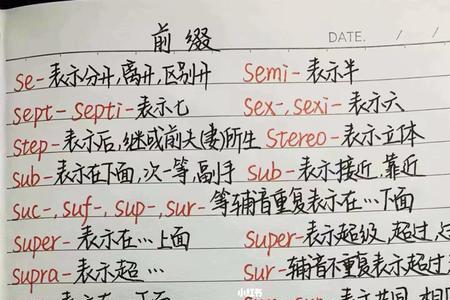 前缀
DATE. / /
se-表示分开,离开,区别开 Semi-表示半
sept-septi-表示七 Sex-,sexi-表示六
Step-表示后,继或前夫(妻)所生 Stereo-表示立体
sub-表示在下面,次一等,副手 sub-表示接近,靠近
suc-,suf-,sup-,sur-等辅音重复表示在…下面
super-表示在…上面 Super-表示超级,超过,过
supra-表示超… sur-辅音不重复表示超过
小红书